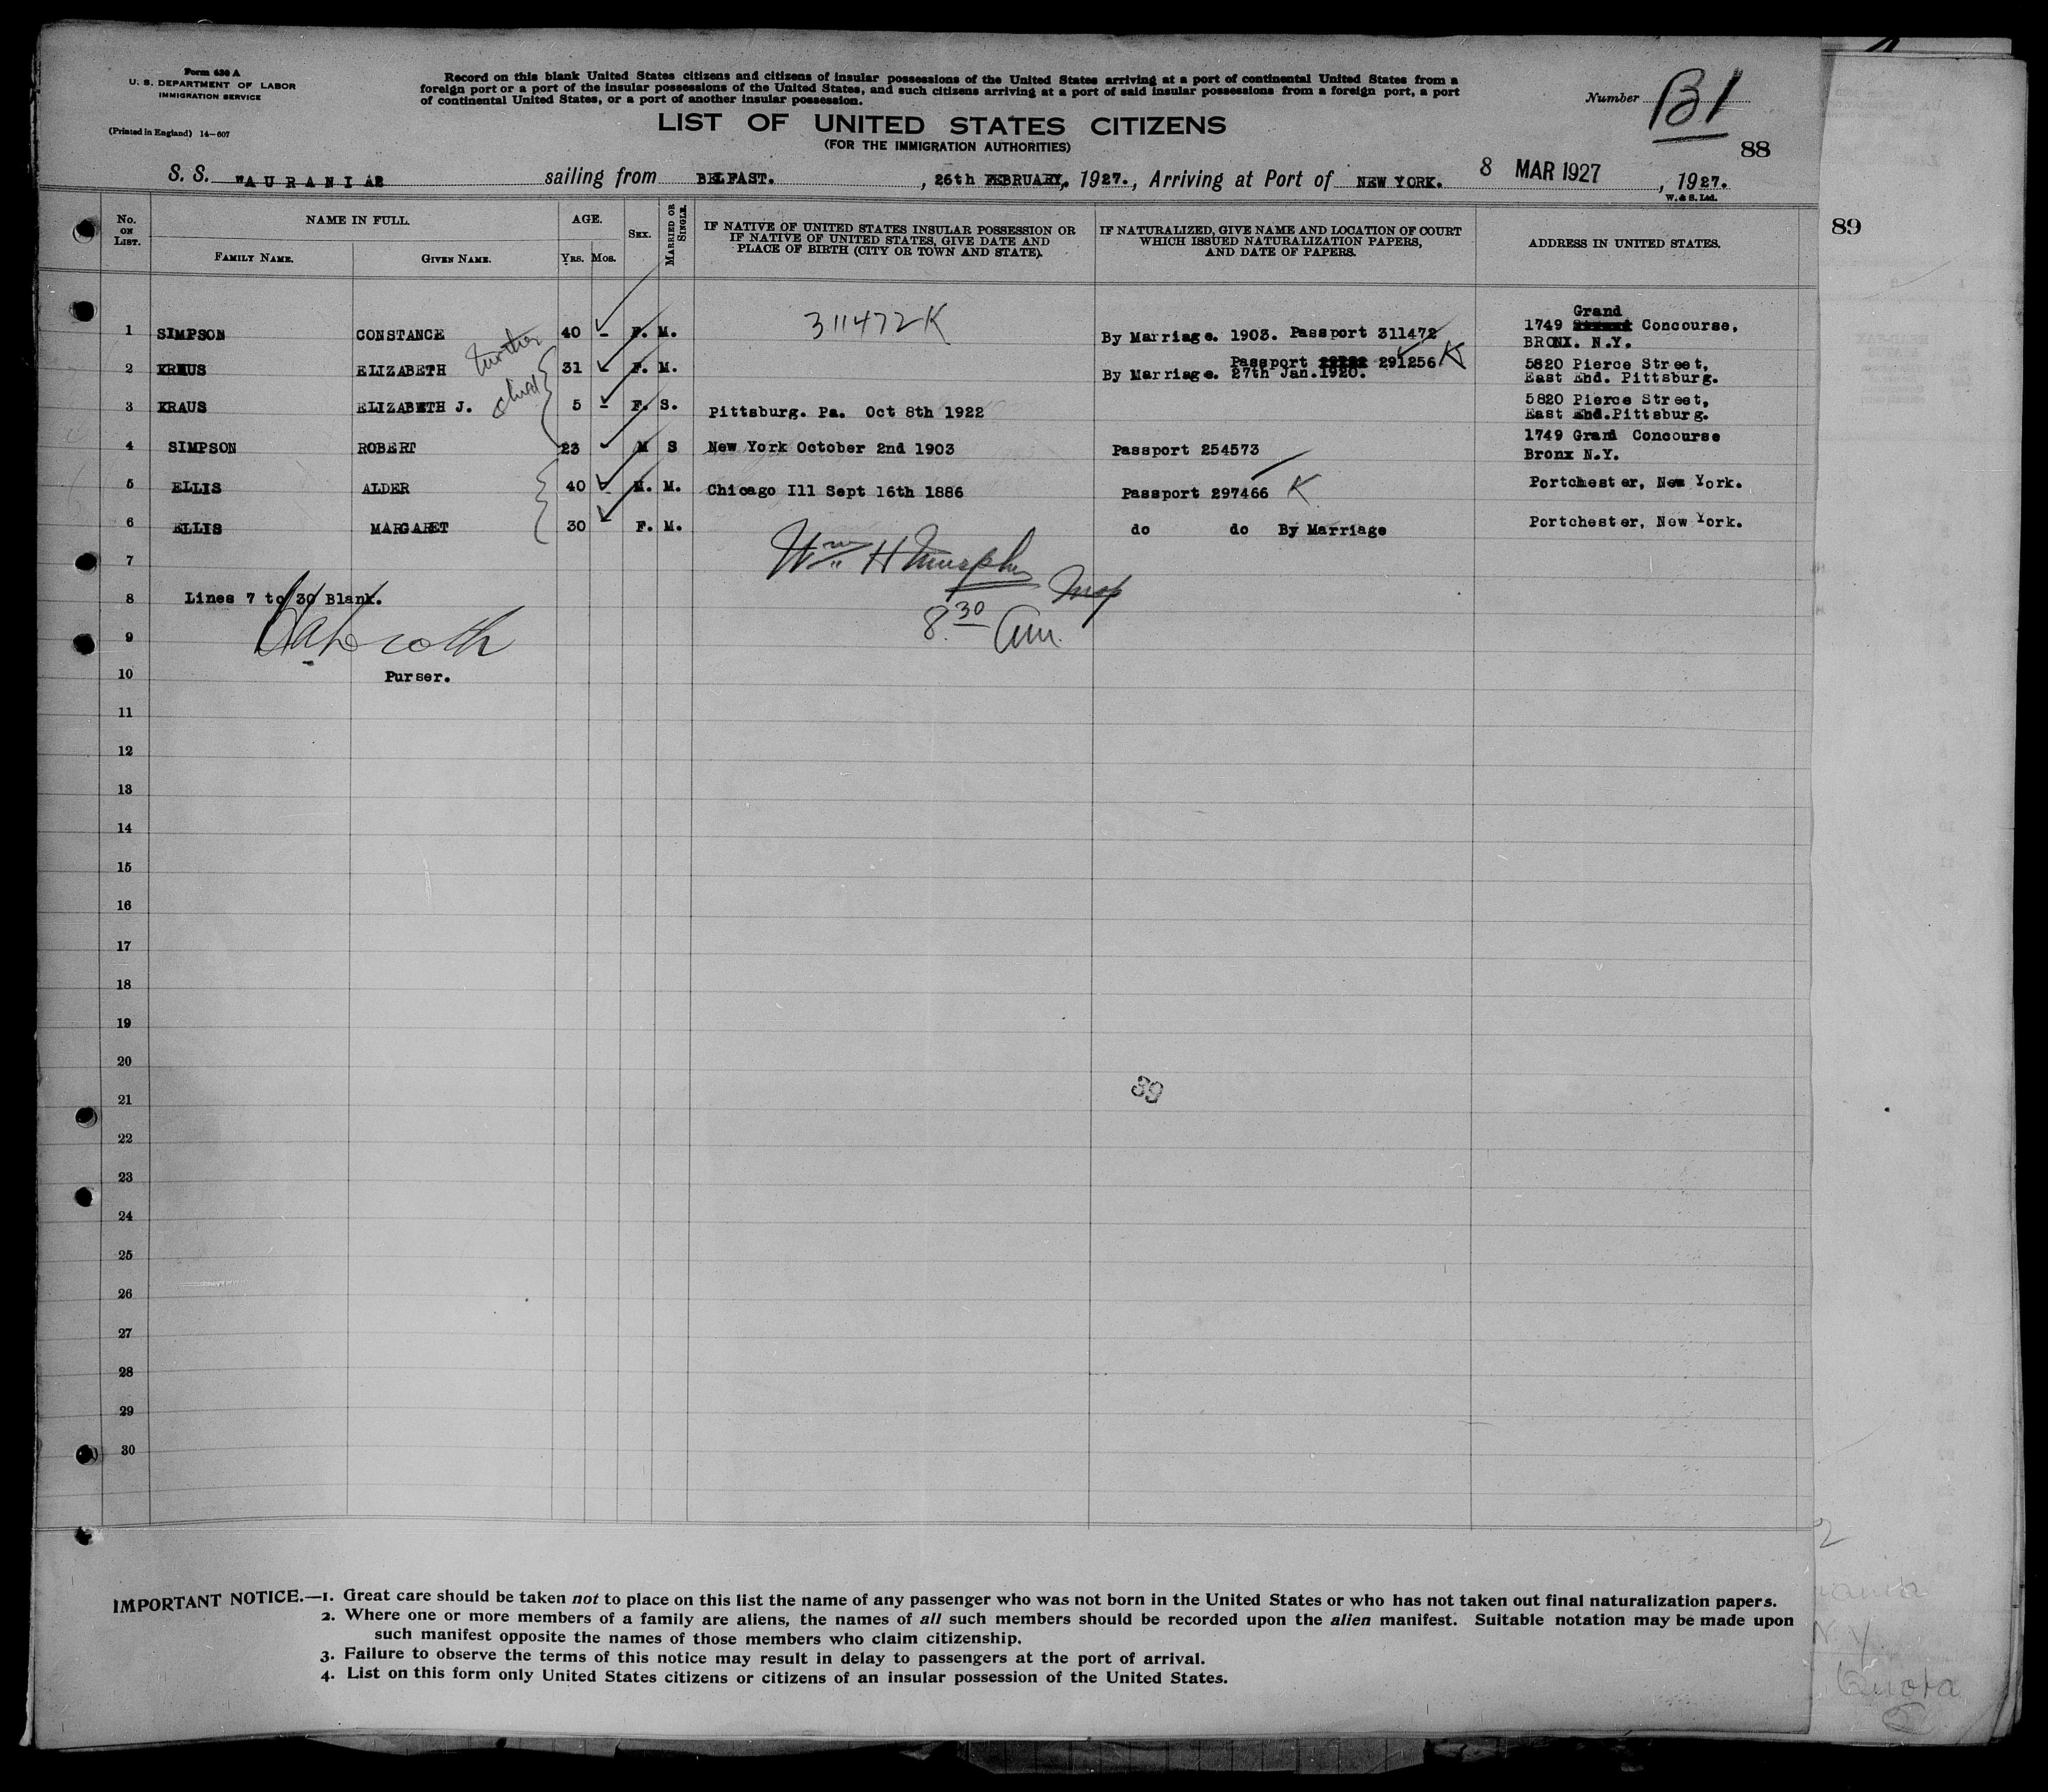 Form 630 A
U. S. DEPARTMENT OF LABOR
IMMIGRATION SERVICE
(Printed in England) 14—607
Record on this blank United States citizens and citizens of insular possessions of the United States arriving at a port of continental United States from a
foreign port or a port of the insular possessions of the United States, and such citizens arriving at a port of said insular possessions from a foreign port, a port
of continental United States, or a port of another insular possession.
Number B1
88
LIST OF UNITED STATES CITIZENS
(FOR THE IMMIGRATION AUTHORITIES)
S. S. AURANIA sailing from BELFAST. , 26th FEBRUARY, 1927., Arriving at Port of NEW YORK. 8 MAR 1927 , 1927.
W. & S. Ltd.
89
No. ON LIST. NAME IN FULL. AGE. SEX. MARRIED OR SINGLE. IF NATIVE OF UNITED STATES INSULAR POSSESSION OR IF NATIVE OF UNITED STATES, GIVE DATE AND PLACE OF BIRTH (CITY OR TOWN AND STATE). IF NATURALIZED, GIVE NAME AND LOCATION OF COURT WHICH ISSUED NATURALIZATION PAPERS, AND DATE OF PAPERS. ADDRESS IN UNITED STATES.
FAMILY NAME. GIVEN NAME. YRS. MOS.
1 SIMPSON CONSTANCE 40 – F. M. 311472 K By Marriage. 1903. Passport 311472 1749 Grand Concourse,
BRONX. N.Y.
2 KRAUS ELIZABETH 31 F. M. Passport 291256 K 5820 Pierce Street,
By Marriage. 27th Jan. 1920. East End. Pittsburg.
3 KRAUS ELIZABETH J. 5 – F. S. Pittsburg. Pa. Oct 8th 1922 5820 Pierce Street,
East End. Pittsburg.
4 SIMPSON ROBERT 23 M S New York October 2nd 1903 Passport 254573 1749 Grand Concourse
Bronx N.Y.
5 ELLIS ALDER 40 M. M. Chicago Ill Sept 16th 1886 Passport 297466 K Portchester, New York.
6 ELLIS MARGARET 30 F. M. do do By Marriage Portchester, New York.
7 Wm H Murphy Insp
8 Lines 7 to 30 Blank.
8 30 am.
9
10 Purser.
11
12
13
14
15
16
17
18
19
20
39
21
22
23
24
25
26
27
28
29
30
IMPORTANT NOTICE.—1. Great care should be taken not to place on this list the name of any passenger who was not born in the United States or who has not taken out final naturalization papers.
2. Where one or more members of a family are aliens, the names of all such members should be recorded upon the alien manifest. Suitable notation may be made upon
such manifest opposite the names of those members who claim citizenship.
3. Failure to observe the terms of this notice may result in delay to passengers at the port of arrival.
4. List on this form only United States citizens or citizens of an insular possession of the United States.
2
N. Y.
Quota